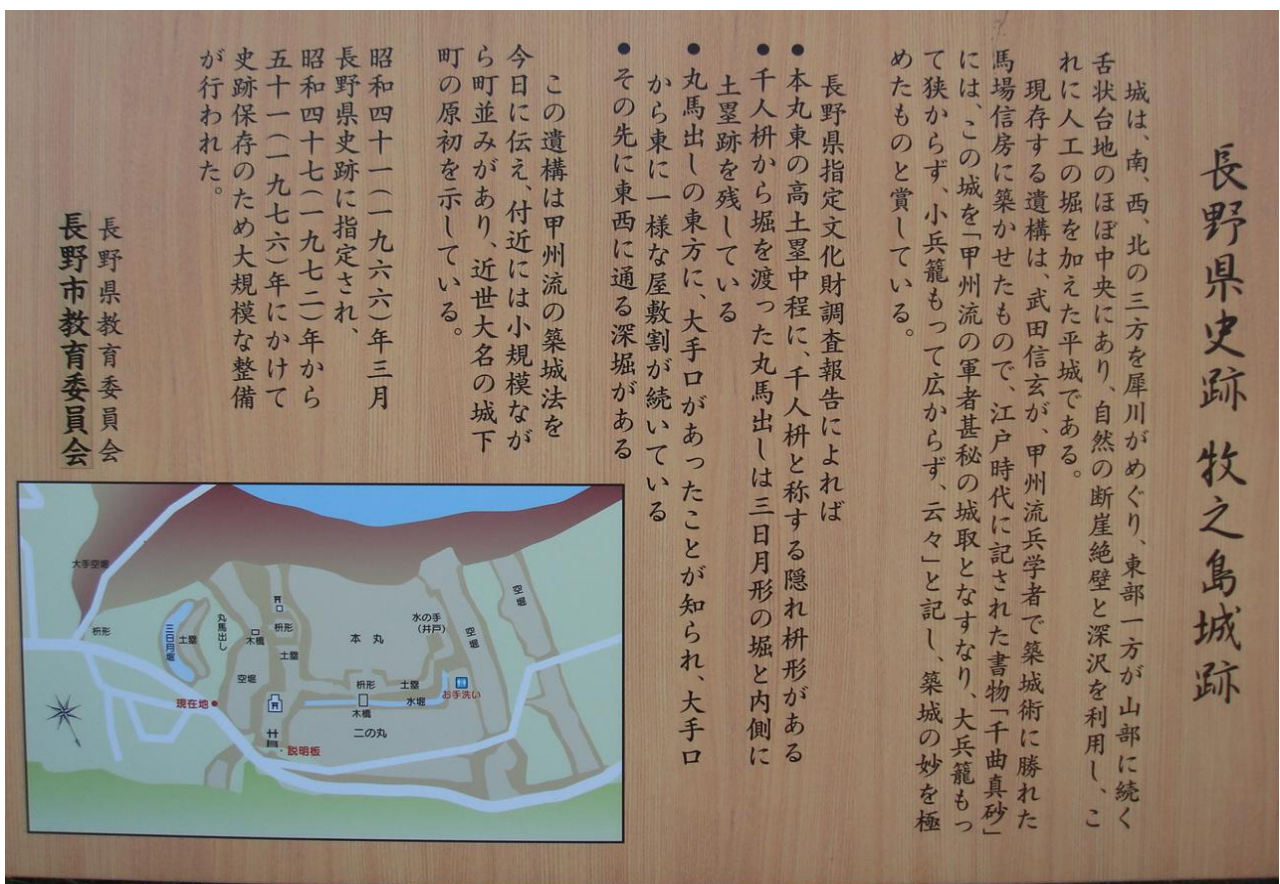 長野県史跡 牧之島城跡
城は、南、西、北の三方を犀川がめぐり、東部一方が山部に続く
舌状台地のほぼ中央にあり、自然の断崖絶壁と深沢を利用し、こ
れに人工の堀を加えた平城である。
現存する遺構は、武田信玄が、甲州流兵学者で築城術に勝れた
馬場信房に築かせたもので、江戸時代に記された書物「千曲真砂」
には、この城を「甲州流の軍者甚秘の城取となすなり、大兵籠もっ
て狭からず、小兵籠もって広からず、云々」と記し、築城の妙を極
めたものと賞している。
長野県指定文化財調査報告によれば
●本丸東の高土塁中程に、千人枡と称する隠れ枡形がある
●千人枡から堀を渡った丸馬出しは三日月形の堀と内側に
土塁跡を残している
●丸馬出しの東方に、大手口があったことが知られ、大手口
から東に一様な屋敷割が続いている
●その先に東西に通る深堀がある
この遺構は甲州流の築城法を
今日に伝え、付近には小規模なが
ら町並みがあり、近世大名の城下
町の原初を示している。
昭和四十一(一九六六)年三月
長野県史跡に指定され、
昭和四十七(一九七二)年から
五十一(一九七六)年にかけて
史跡保存のため大規模な整備
が行われた。
長野県教育委員会
長野市教育委員会
大手空堀
枡形
三日月堀
土塁
丸馬出し
木橋
枡形
土塁
空堀
本丸
水の手
(井戸)
空堀
空堀
枡形
土塁
水堀
お手洗い
木橋
二の丸
現在地
説明板